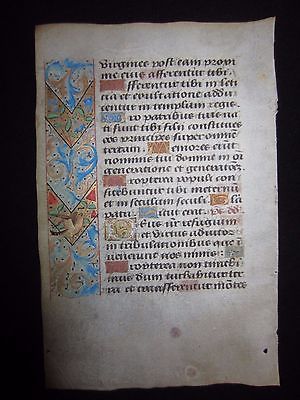 Virgines post eam proxi
me eius afferentur tibi.
Afferentur tibi in leti
cia et exultatione addu
centur in templum regis
Pro patribus tuis na
ti sunt tibi filij constitues
eos principes super omnem
terram. Memores erunt
nominis tui domine in om
generatione et generatōe.
Propterea populi con
fitebuntur tibi in eternū
et in seculum seculi.
Gloria patri. Sicut erat. ps dd.
Deus nr̄ refugium
et virtus adiutor
in tribulationibus que in
uenerunt nos nimis.
Propterea non timebi
mus dum turbabitur ter
ra et transferentur mōtes